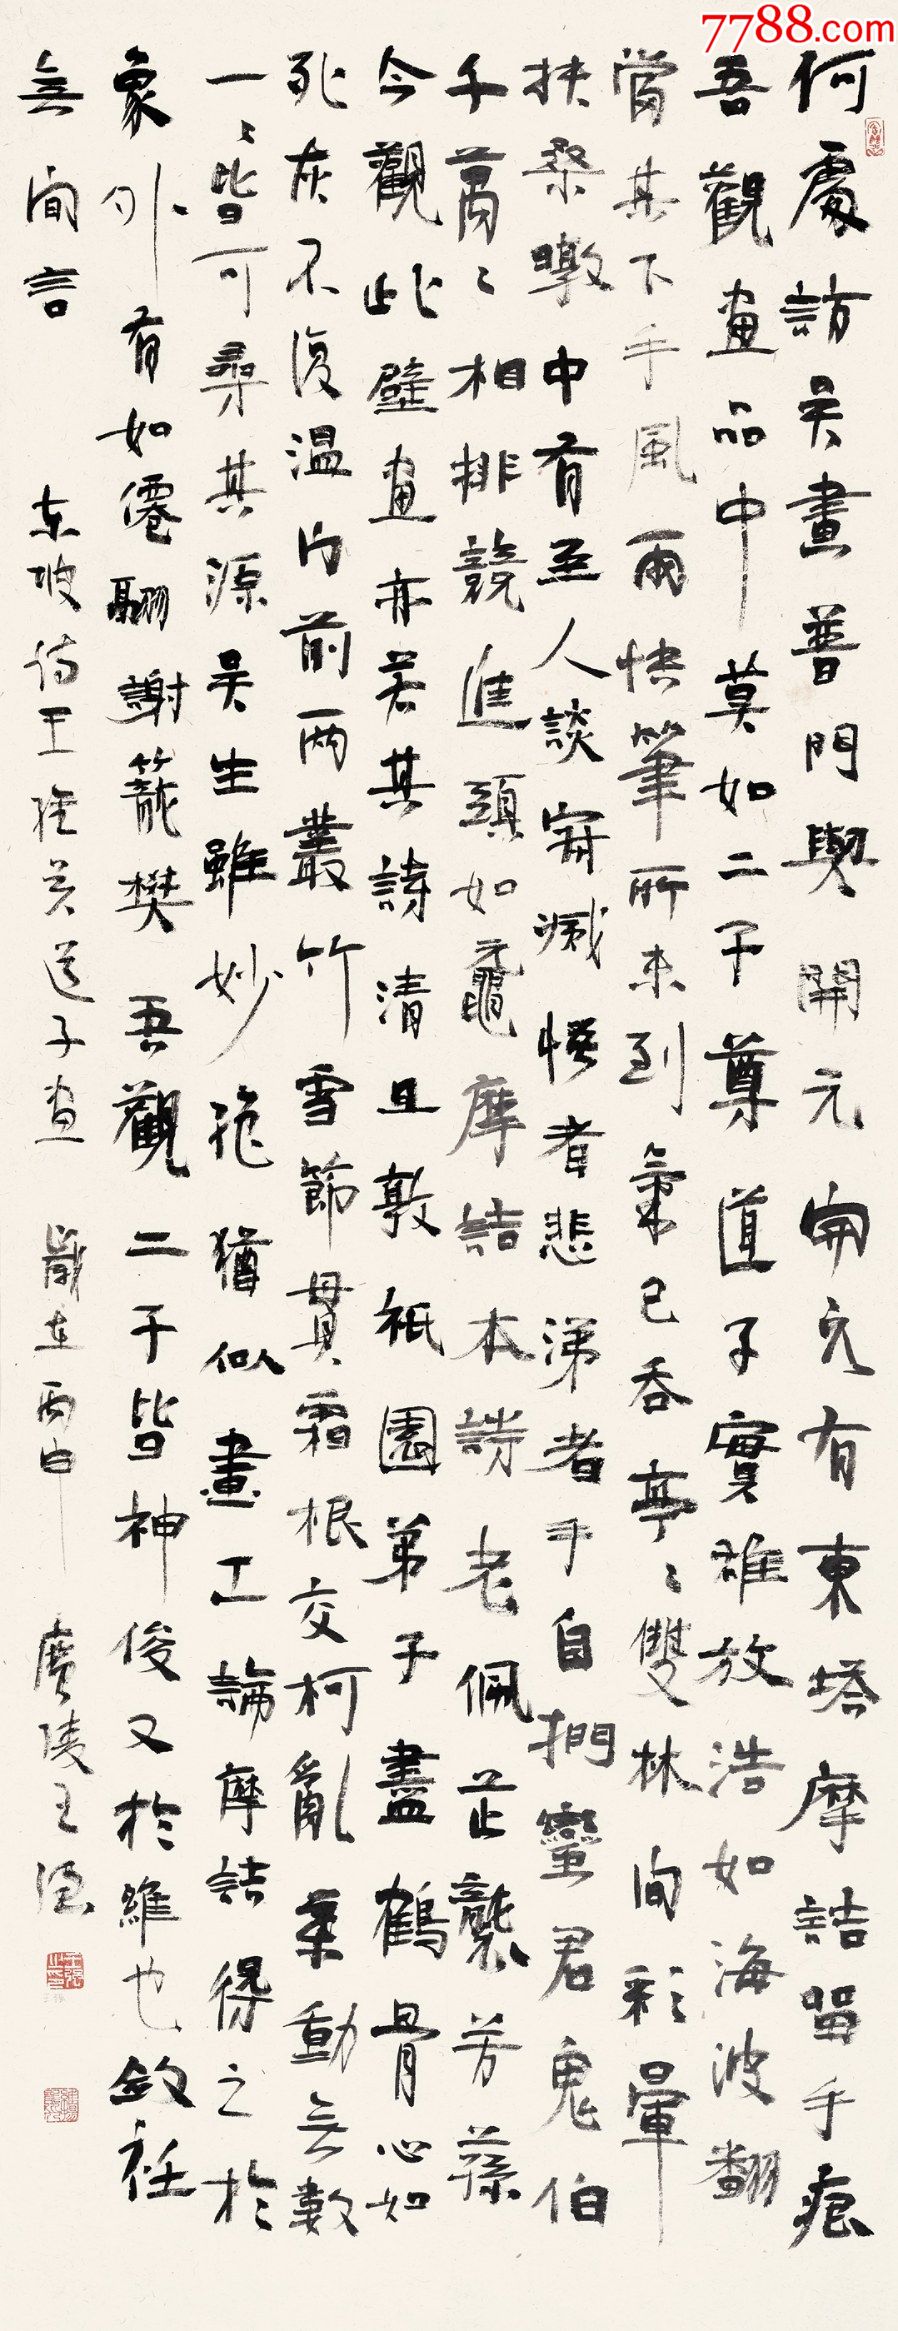 7788.com
何處訪吳畫普門與開元開元有東塔摩詰留手痕
吾觀畫品中莫如二子尊道子實雄放浩如海波翻
當其下手風雨快筆所未到氣已吞亭〻雙林間彩暈
扶桑暾中有至人談寂滅悟者悲涕者手自捫蠻君鬼伯
千萬〻相排競進頭如黿摩詰本詩老佩芷襲芳蓀
今觀此壁畫亦若其詩清且敦祇園弟子盡鶴骨心如
死灰不復溫門前兩叢竹雪節貫霜根交柯亂葉動無數
一〻皆可尋其源吳生雖妙絕猶似畫工論摩詰得之於
象外有如僊翮謝籠樊吾觀二子皆神俊又於維也斂衽
無間言 東坡詩王維吳道子畫 歲在丙申 廣陵王強